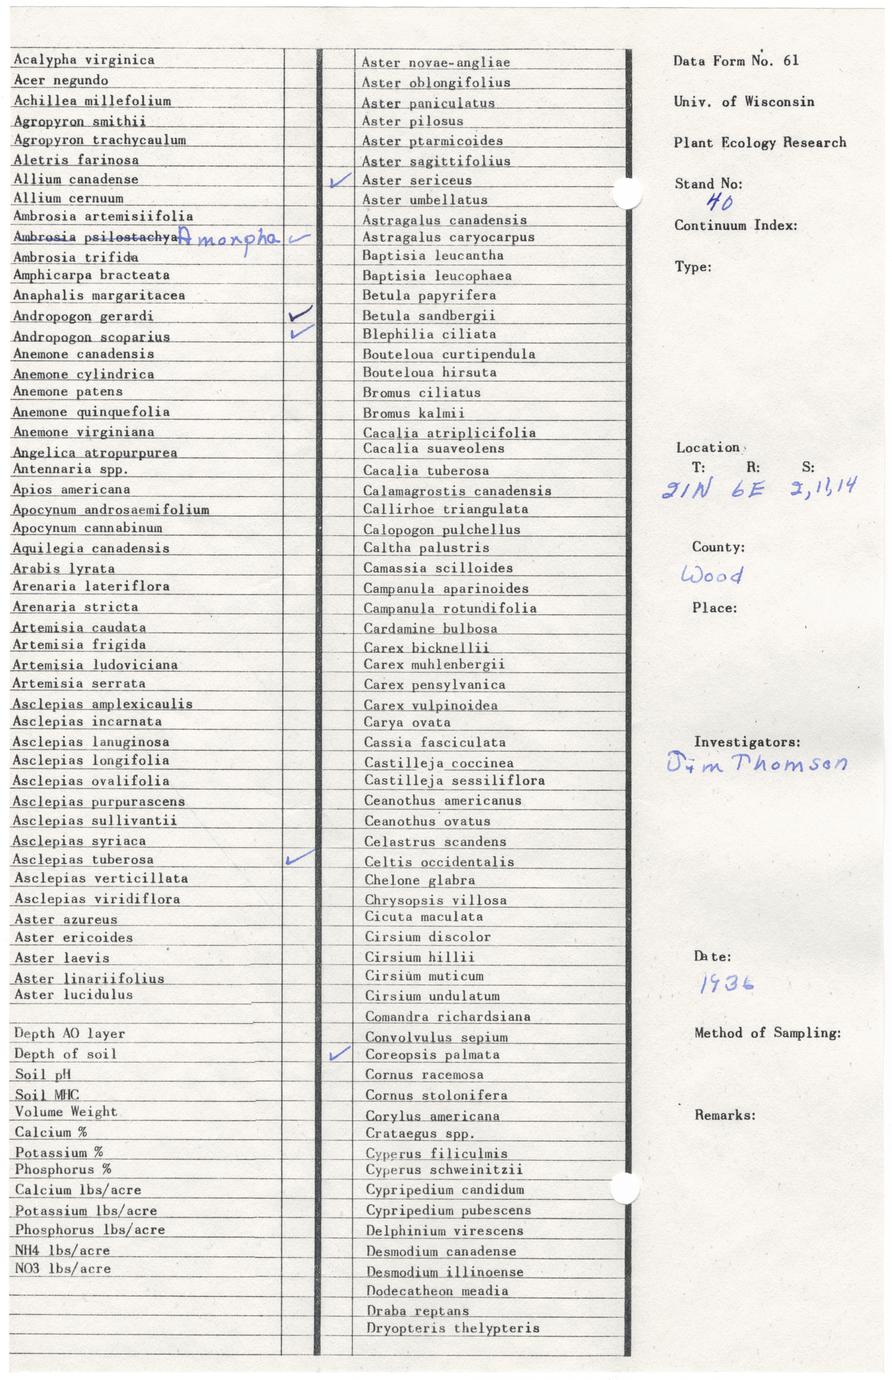 Acalypha virginica
Acer negundo
Achillea millefolium
Agropyron smithii
Agropyron trachycaulum
Aletris farinosa
Allium canadense
Allium cernuum
Ambrosia artemisiifolia
Ambrosia psilostachya Amorpha ✓
Ambrosia trifida
Amphicarpa bracteata
Anaphalis margaritacea
Andropogon gerardi ✓
Andropogon scoparius ✓
Anemone canadensis
Anemone cylindrica
Anemone patens
Anemone quinquefolia
Anemone virginiana
Angelica atropurpurea
Antennaria spp.
Apios americana
Apocynum androsaemifolium
Apocynum cannabinum
Aquilegia canadensis
Arabis lyrata
Arenaria lateriflora
Arenaria stricta
Artemisia caudata
Artemisia frigida
Artemisia ludoviciana
Artemisia serrata
Asclepias amplexicaulis
Asclepias incarnata
Asclepias lanuginosa
Asclepias longifolia
Asclepias ovalifolia
Asclepias purpurascens
Asclepias sullivantii
Asclepias syriaca
Asclepias tuberosa ✓
Asclepias verticillata
Asclepias viridiflora
Aster azureus
Aster ericoides
Aster laevis
Aster linariifolius
Aster lucidulus
Depth AO layer
Depth of soil
Soil pH
Soil MHC
Volume Weight
Calcium %
Potassium %
Phosphorus %
Calcium lbs/acre
Potassium lbs/acre
Phosphorus lbs/acre
NH4 lbs/acre
NO3 lbs/acre
Aster novae-angliae
Aster oblongifolius
Aster paniculatus
Aster pilosus
Aster ptarmicoides
Aster sagittifolius
✓ Aster sericeus
Aster umbellatus
Astragalus canadensis
Astragalus caryocarpus
Baptisia leucantha
Baptisia leucophaea
Betula papyrifera
Betula sandbergii
Blephilia ciliata
Bouteloua curtipendula
Bouteloua hirsuta
Bromus ciliatus
Bromus kalmii
Cacalia atriplicifolia
Cacalia suaveolens
Cacalia tuberosa
Calamagrostis canadensis
Callirhoe triangulata
Calopogon pulchellus
Caltha palustris
Camassia scilloides
Campanula aparinoides
Campanula rotundifolia
Cardamine bulbosa
Carex bicknellii
Carex muhlenbergii
Carex pensylvanica
Carex vulpinoidea
Carya ovata
Cassia fasciculata
Castilleja coccinea
Castilleja sessiliflora
Ceanothus americanus
Ceanothus ovatus
Celastrus scandens
Celtis occidentalis
Chelone glabra
Chrysopsis villosa
Cicuta maculata
Cirsium discolor
Cirsium hillii
Cirsium muticum
Cirsium undulatum
Comandra richardsiana
Convolvulus sepium
✓ Coreopsis palmata
Cornus racemosa
Cornus stolonifera
Corylus americana
Crataegus spp.
Cyperus filiculmis
Cyperus schweinitzii
Cypripedium candidum
Cypripedium pubescens
Delphinium virescens
Desmodium canadense
Desmodium illinoense
Dodecatheon meadia
Draba reptans
Dryopteris thelypteris
Data Form No. 61
Univ. of Wisconsin
Plant Ecology Research
Stand No:
40
Continuum Index:
Type:
Location
T: R: S:
21N 6E 2,11,14
County:
Wood
Place:
Investigators:
Jim Thomson
Date:
1936
Method of Sampling:
Remarks: